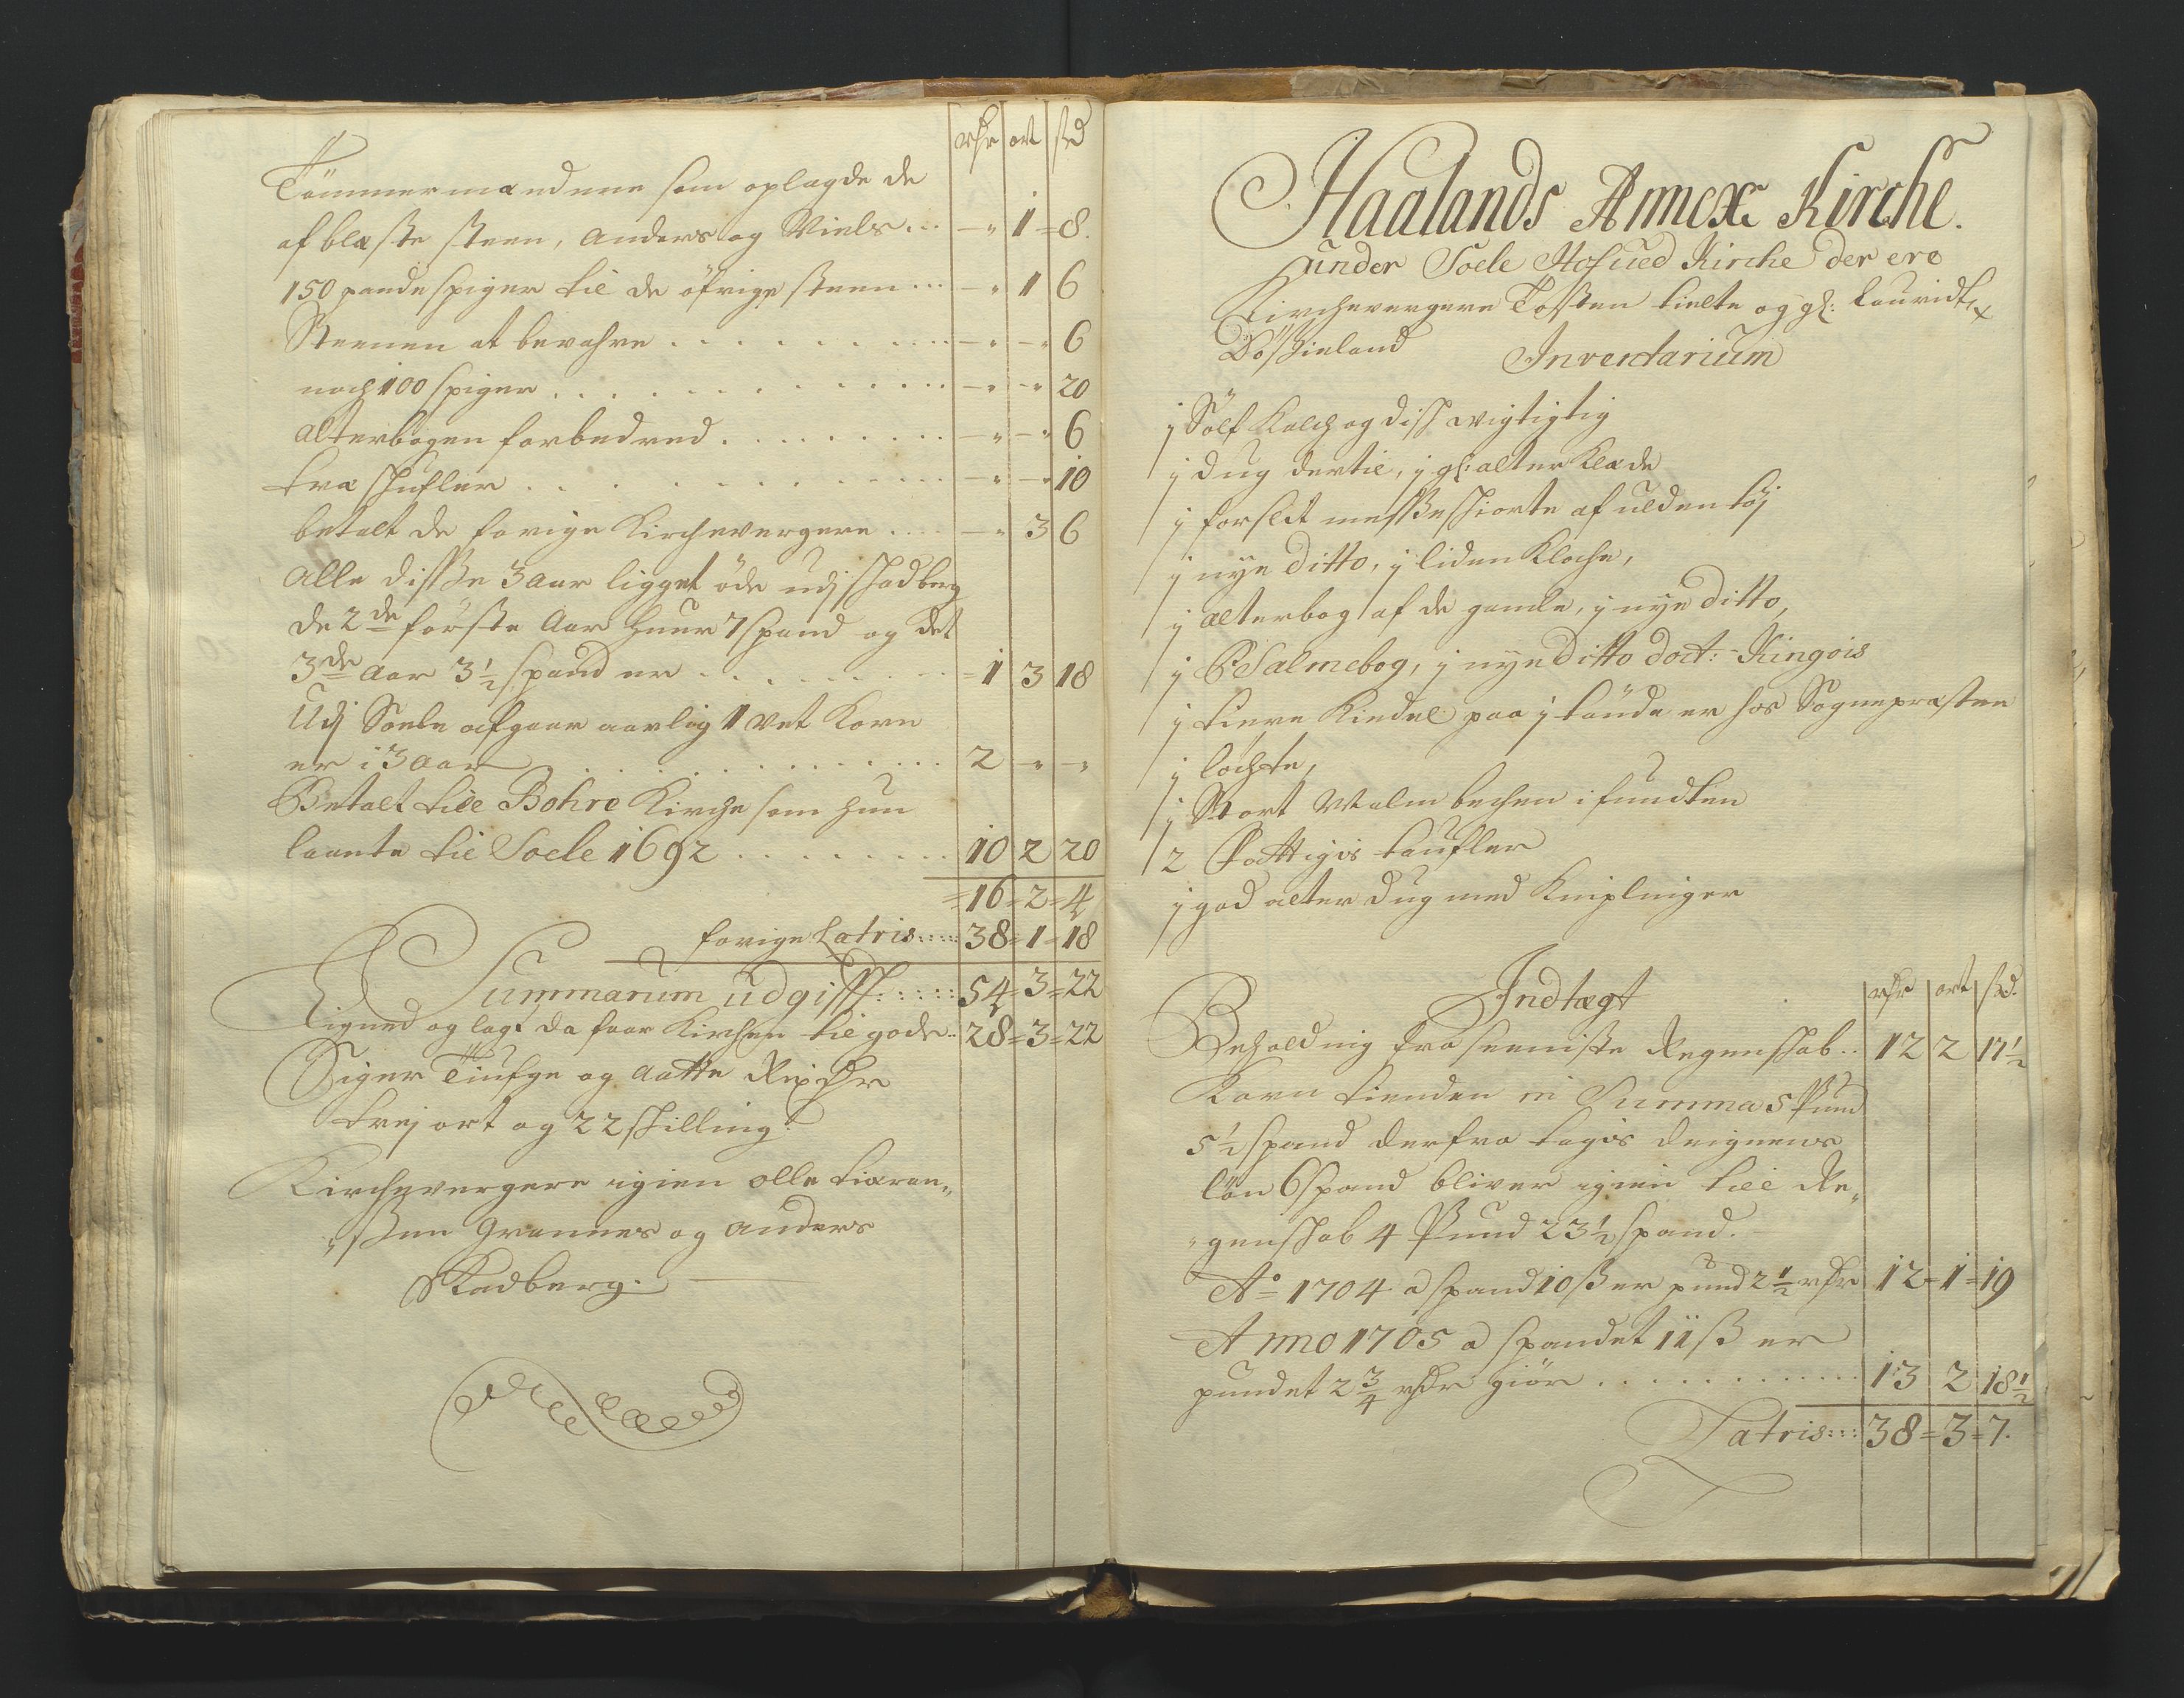 rdr ort sd
Tömmermændene som oplagde de
afblæste steen, Anders og Niels... -" 1=8.
150 pandespiger til de öfrige steen... -" 1 6
Steenen at bevahre . . . . -" -" 6
noch 100 spiger . . . . -" -" 20
Alterbogen forbedred . . . . -" -" 6
træ schufler . . . . -" -" 10
betalt de forige Kirchevergere . . . -" 3 6
Alle disse 3 aar ligget öde udj Schadberg
de 2de förste Aar huer 7 spand og det
3de Aar 3½ spand er . . . . =1 3 18
Udj Soele afgaar aarlig 1 vet Korn
er i 3 Aar . . . . 2 -" -"
Betalt till Bohre Kirche som hun
laante til Soele 1692 . . . . 10 2 20
=16=2=4
forige Latris::::: 38=1=18
Summarum udgifft::::: 54=3=22
Ligned og lagt da faar Kirchen til gode.. 28=3=22
Siger Tiufge og Aatte Rix dr
trej ort og 22 skilling.
Kirchevergere igien Olle
"ssen Grannes og Anders
Skadberg.
Haalands Annexe Kirche.
under Soele Hofued Kirche der ere
Kirchevergere Tosten tielte og gl: Lauridtz
Inventarium
j Sölf Kalch og disch wigtigtig
j dug dertil, j gl: alter Klæde
j forslit messeschiorte af ulden töj
j nye ditto, j liden Kloche,
j Alterbog af de gamle, j nye ditto,
j Psalmebog, j nye ditto doct: Kingois
j tiere Kiedel paa j tönde er hos Sognepræsten
j löchte,
j Stort Malm bechen i fundten
2 Fattigis taufler
j god alter dug med Kniplinger
Indtægt rdr ort sd.
Beholdnig fra seeniste Regenschab.. 12 2 17½
Korn tienden in Summa 5 Pund
5½ spand derfra tagis deignens
lön 6 spand bliver igien till Re"
"genschab 4 Pund 23½ spand.
Ao 1704 a spand 10 ß er pund 2½ rdr 12=1=19
Anno 1705 a spandet 11 ß er
pundet 2¾ rdr giör . . . . 13 2 18½
Latris:::: 38=3=7.